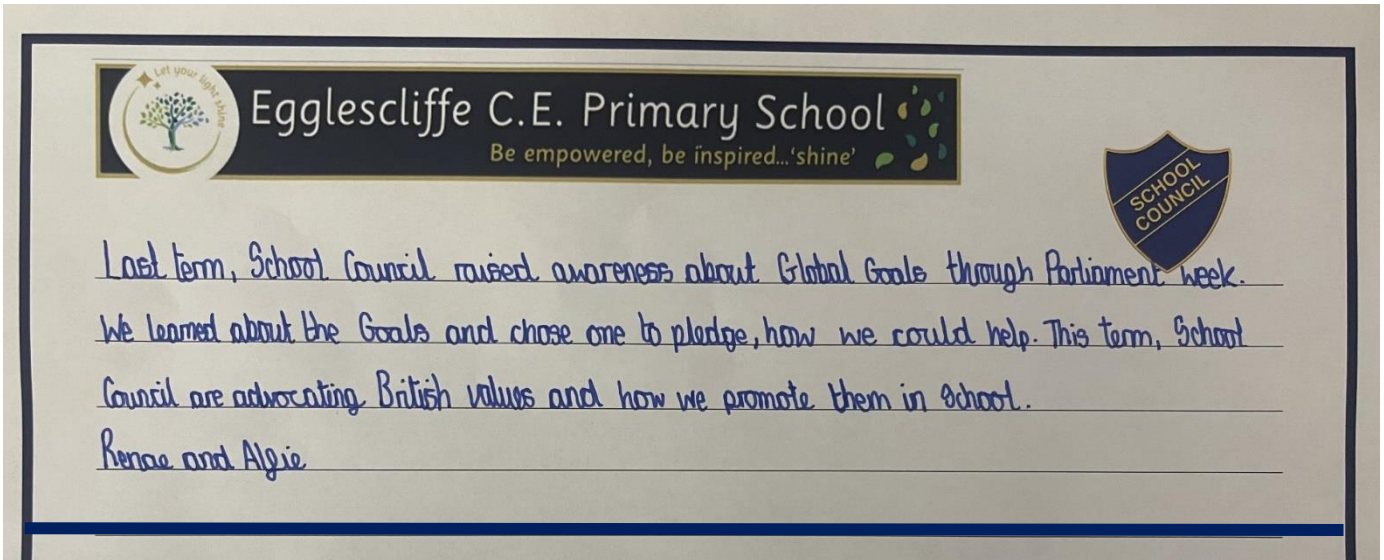 Let your light shine
Egglescliffe C.E. Primary School
Be empowered, be inspired...'shine'
SCHOOL
COUNCIL
Last term, School Council raised awareness about Global Goals through Parliament week.
We learned about the Goals and chose one to pledge, how we could help. This term, School
Council are advocating British values and how we promote them in School.
Renae and Algie